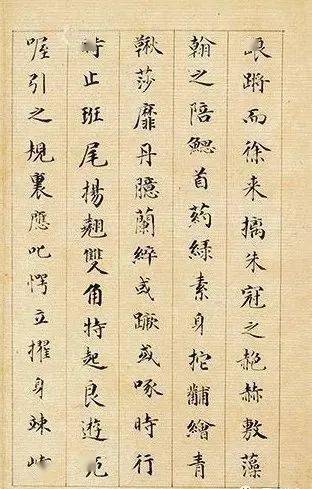 踉蹡而徐来摛朱冠之赩赫敷藻
翰之陪鰓首葯綠素身拕黼繪青
鞦莎靡丹臆蘭綷或蹶或啄時行
時止班尾揚翹雙角特起良遊呃
喔引之規裏應叱愕立擢身竦峙